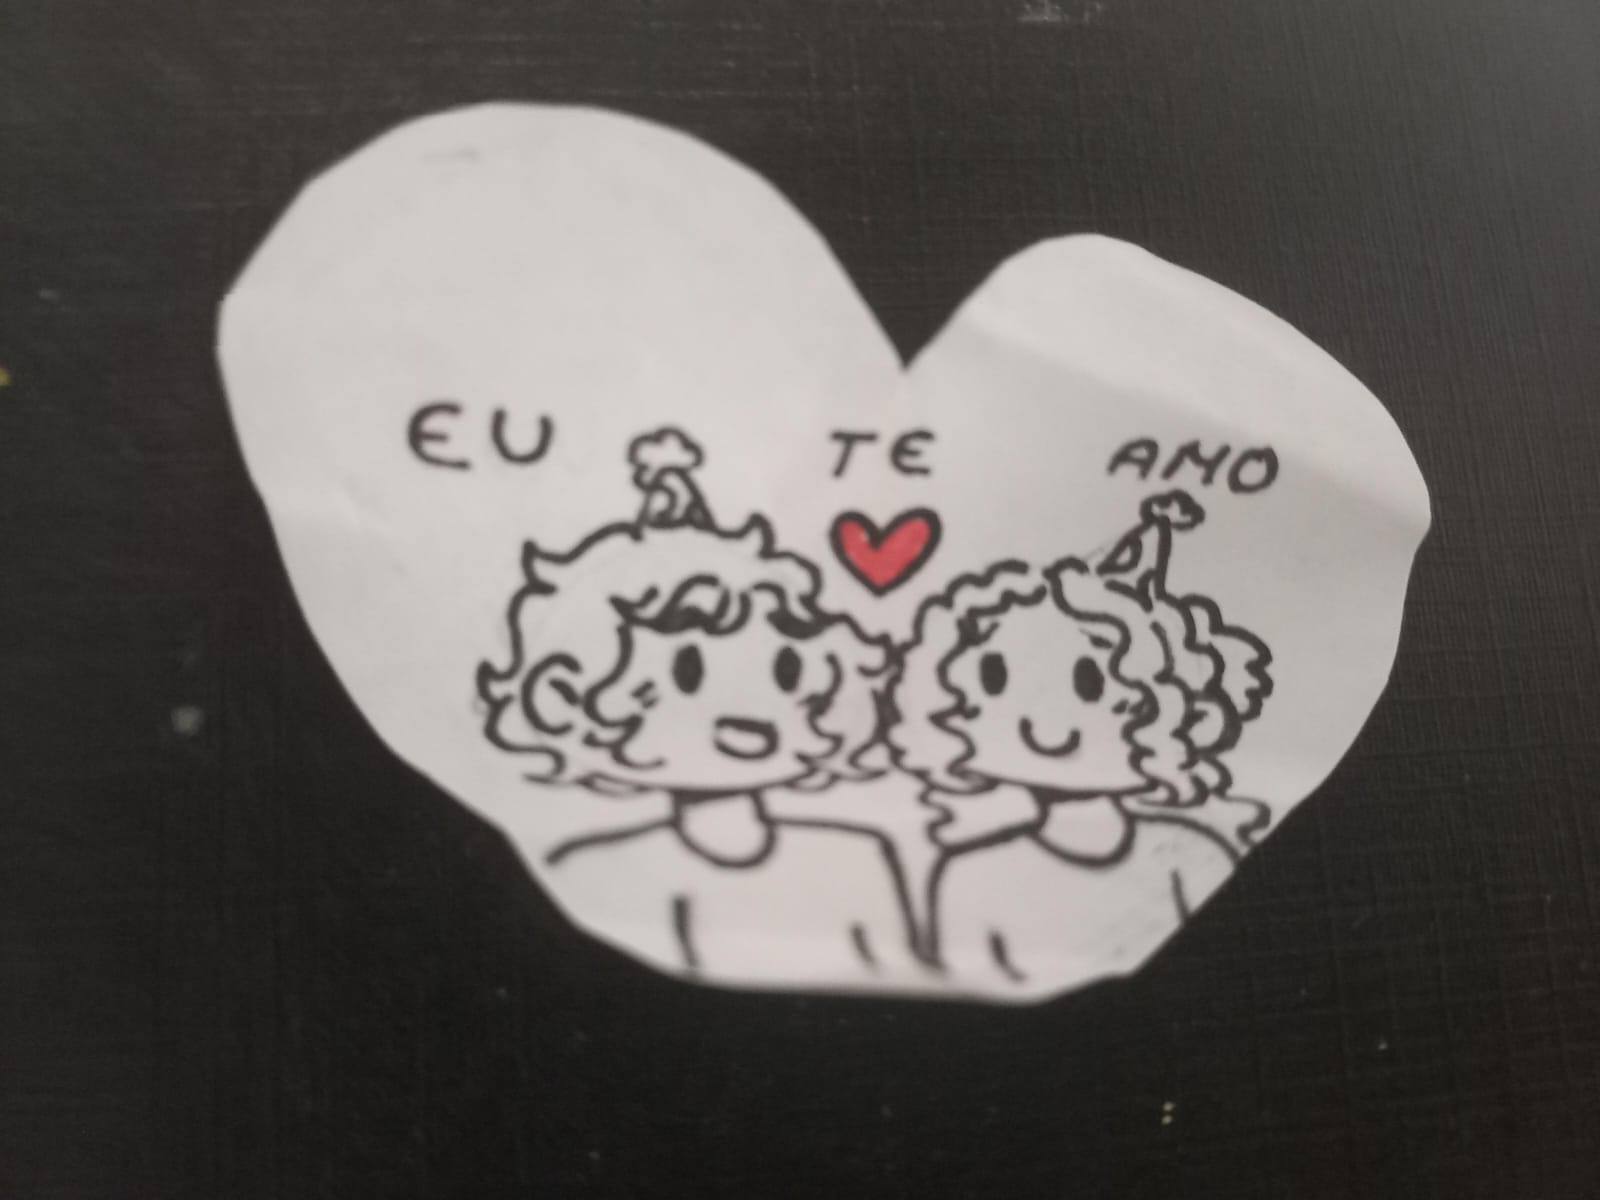 EU TE AMO